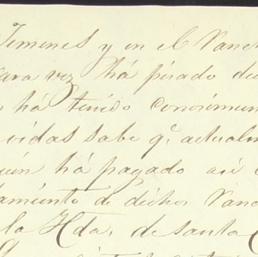 Jimenes y en el Ranch
rara vez há pisado di
há tenido conocimien
vidas sabe q.e actualm
uien há pagado así e
amiento de dichos Ranc
la Hda. de Santa C